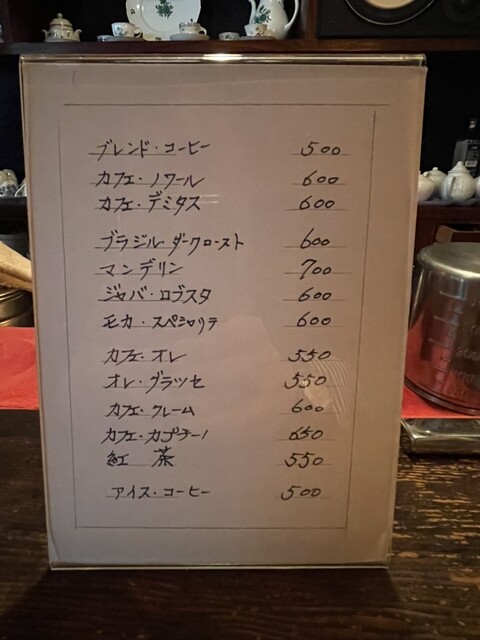 ブレンド・コーヒー 500
カフェ・ノワール 600
カフェ・デミタス 600
ブラジル・ダークロースト 600
マンデリン 700
ジャバ・ロブスタ 600
モカ・スペシャリテ 600
カフェ・オレ 550
オレ・グラッセ 550
カフェ・クレーム 600
カフェ・カプチーノ 650
紅 茶 550
アイス・コーヒー 500